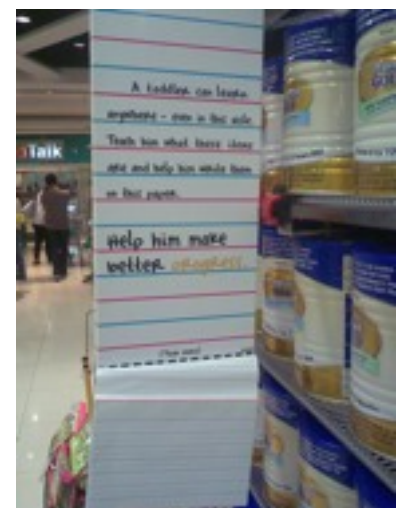 Talk
A toddler can learn
anywhere - even in this aisle.
Teach him what these items
are and help him write them
on this paper.
Help him make
better progress.
GOLD